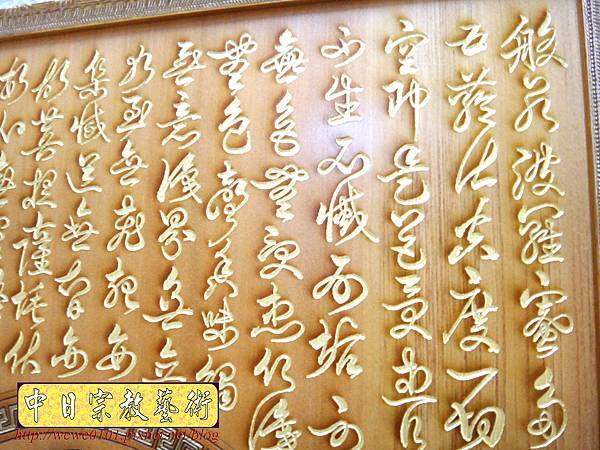 般若波羅蜜多
五蘊皆空度一切
空即是色受想行
不生不滅不垢不
無色無受想行識
無色聲香味觸
無意識界無
乃至無老死
集滅道無智亦
故菩提薩埵依
中日宗教藝術
http://wewe0101.pixnet.net/blog